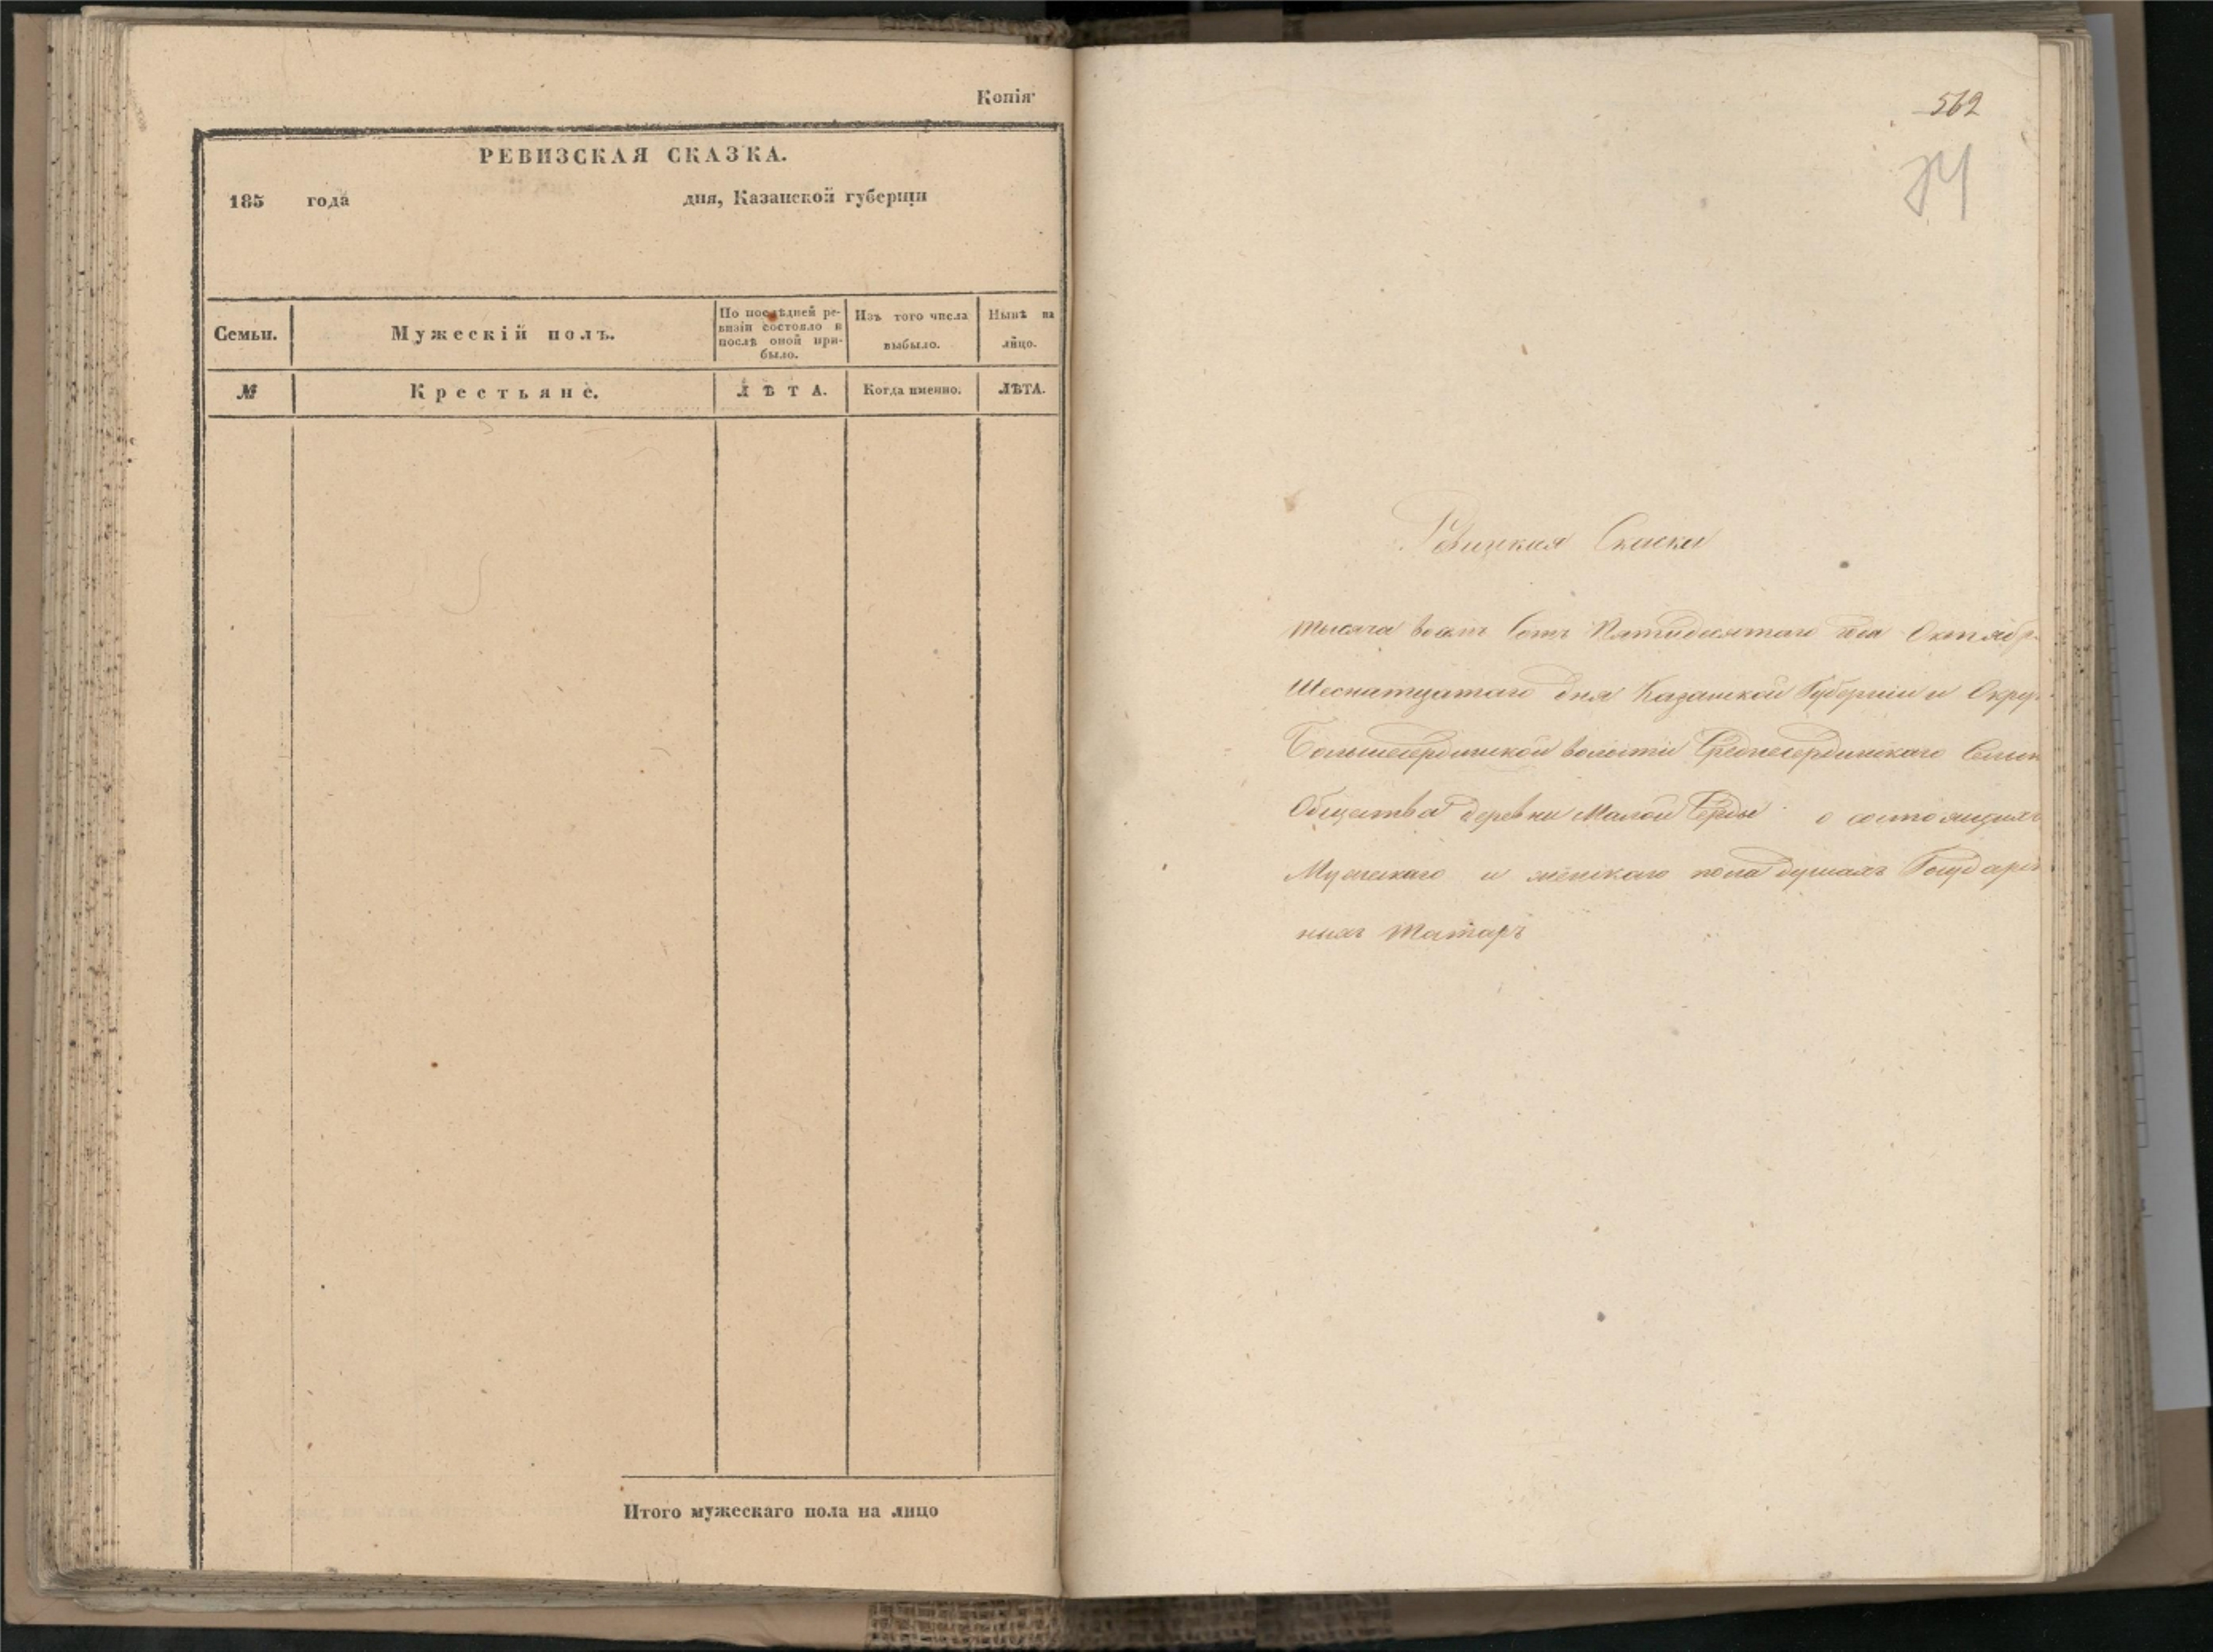 Копія
РЕВИЗСКАЯ СКАЗКА.
185 года дня, Казанской губерніи
Семьи.
Мужескій полъ.
По послѣдней ре-
визіи состояло и
послѣ оной при-
было.
Изъ того числа
выбыло.
Нынѣ на
лицо.
№
Крестьяне.
ЛѢТА.
Когда именно.
ЛѢТА.
Итого мужескаго пола на лицо
562
Ревизкая Скаска
тысяча восемь сотъ Пятидесятаго года Октябр
Шеснатцатаго дня Казанской Губерніи и Округ
Большесердинской волости Среднесердинскаго Сельск
Общества деревни Малой Серды о состоящихъ
Мужескаго и женскаго пола душахъ Государст
ныхъ Татаръ